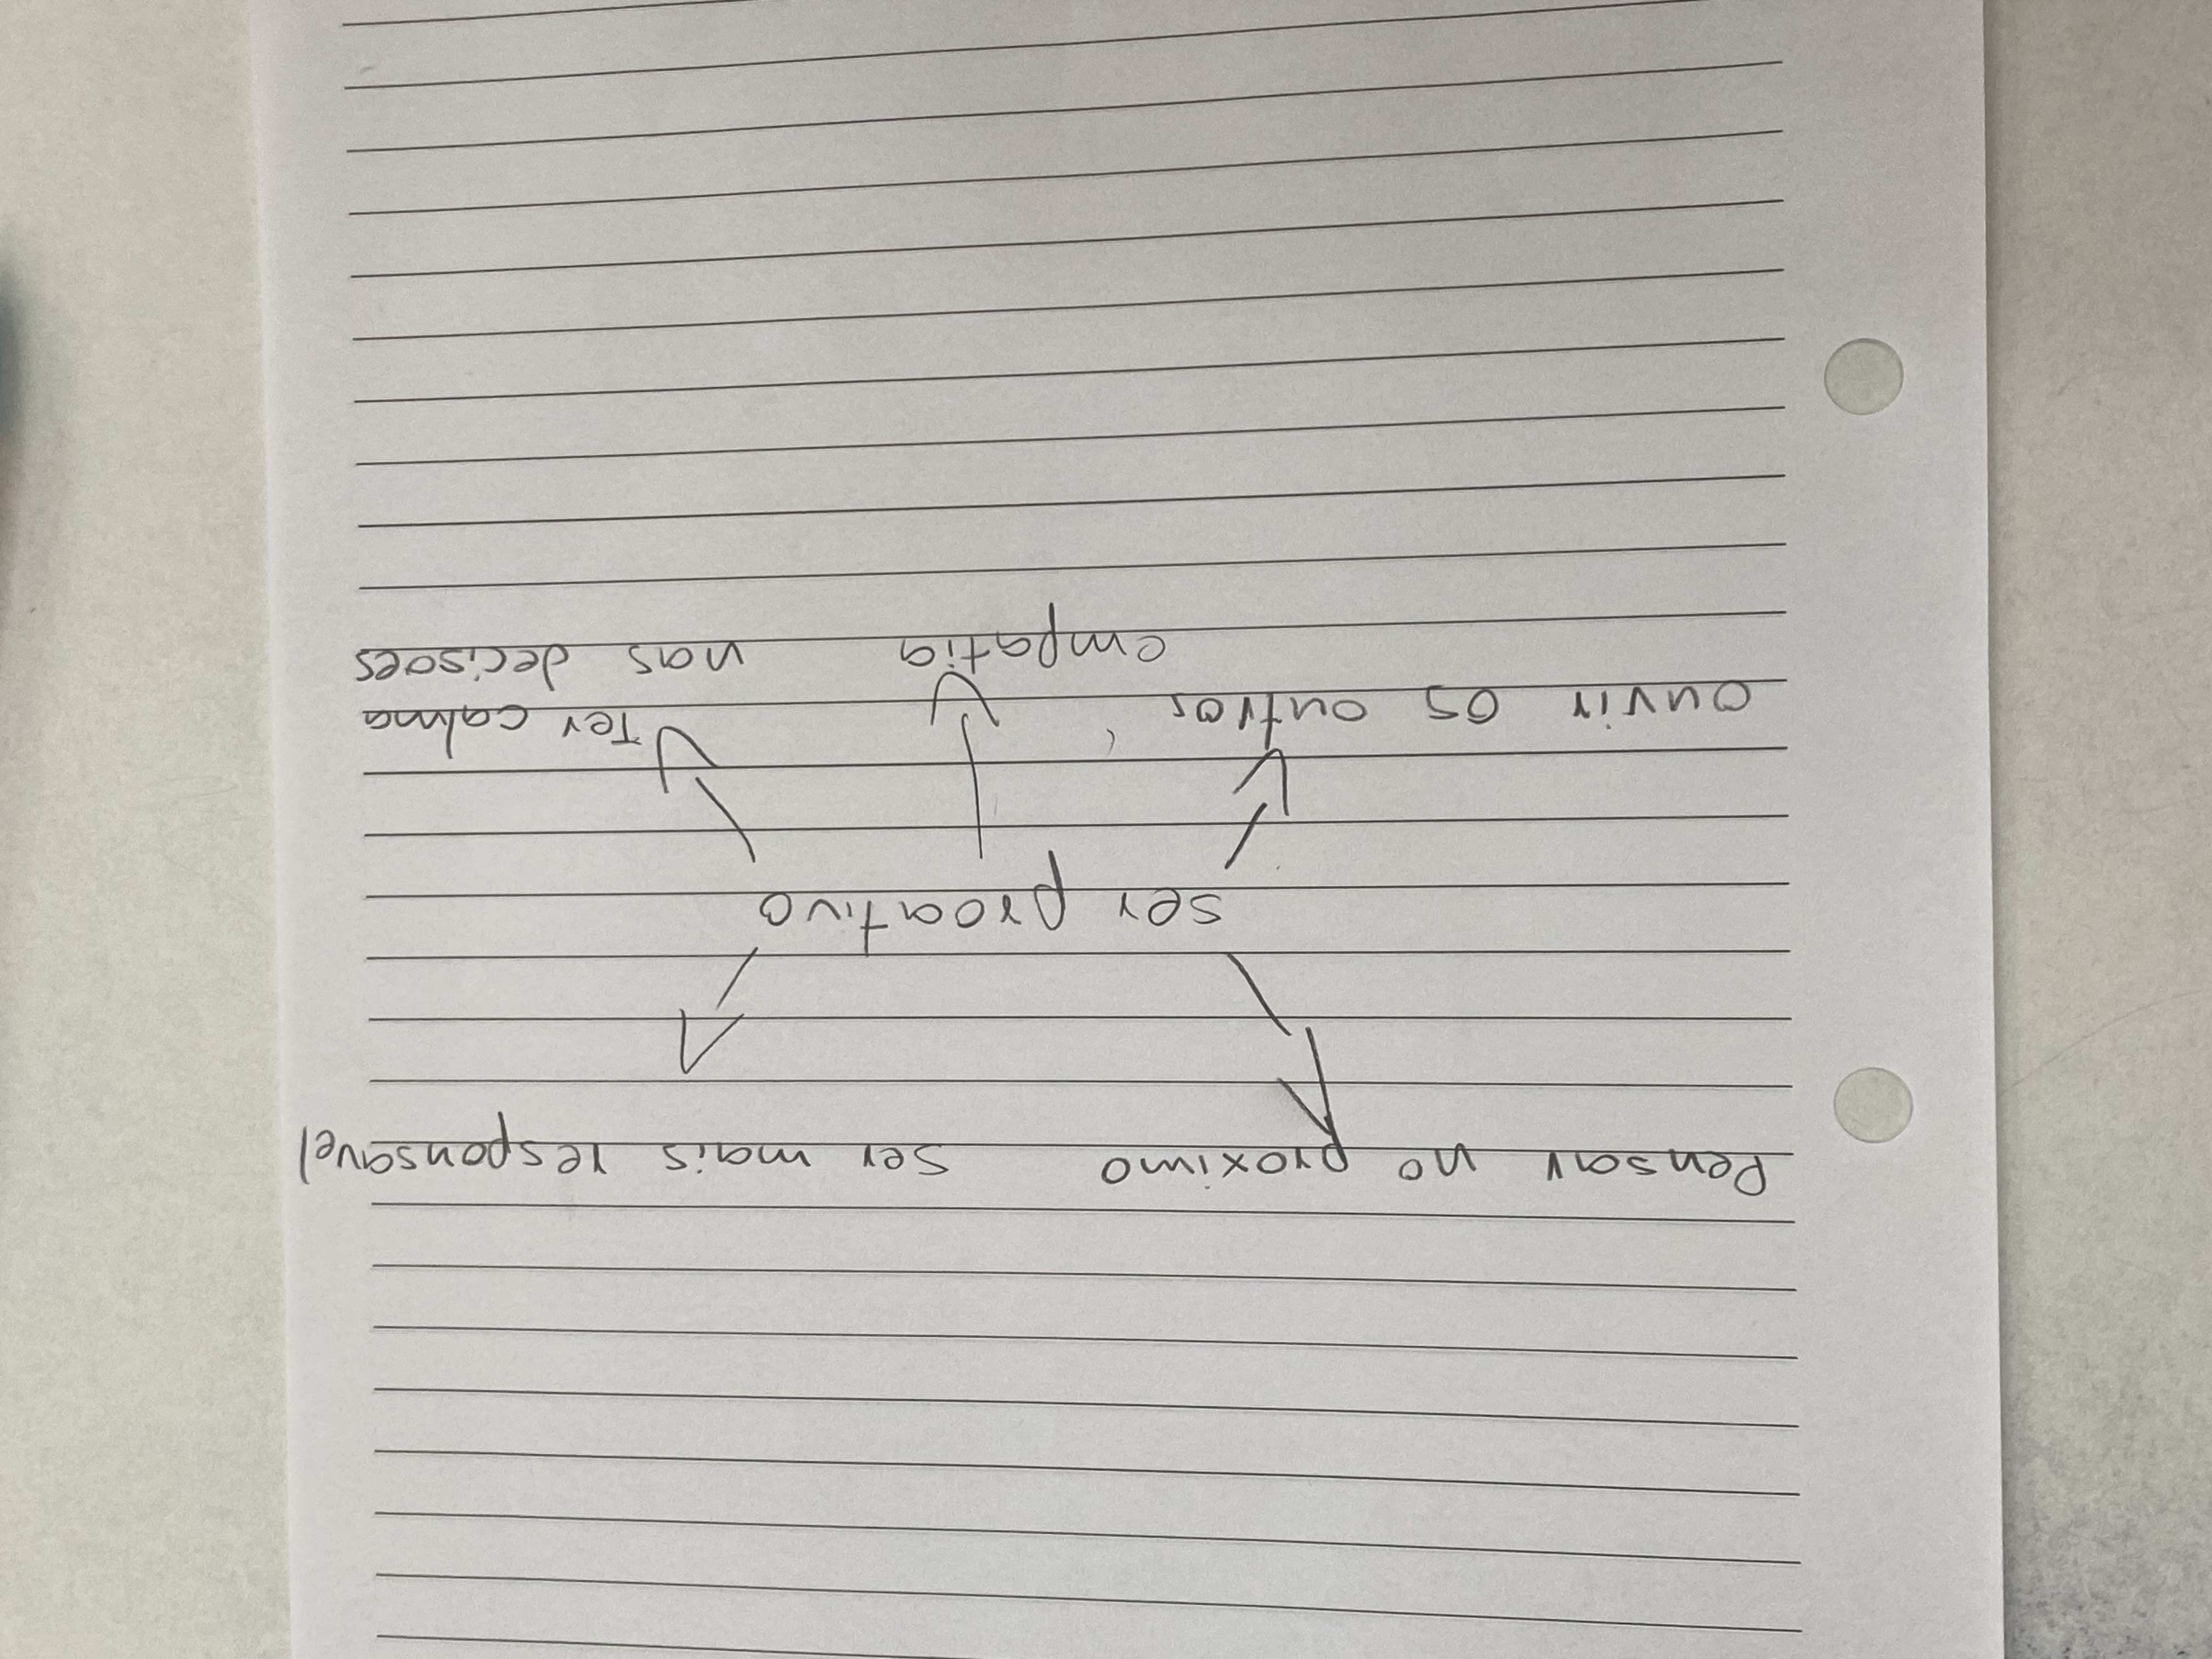 Pensar no proximo ser mais responsavel
ser proativo
ouvir os outros Ter calma
empatia nas decisoes